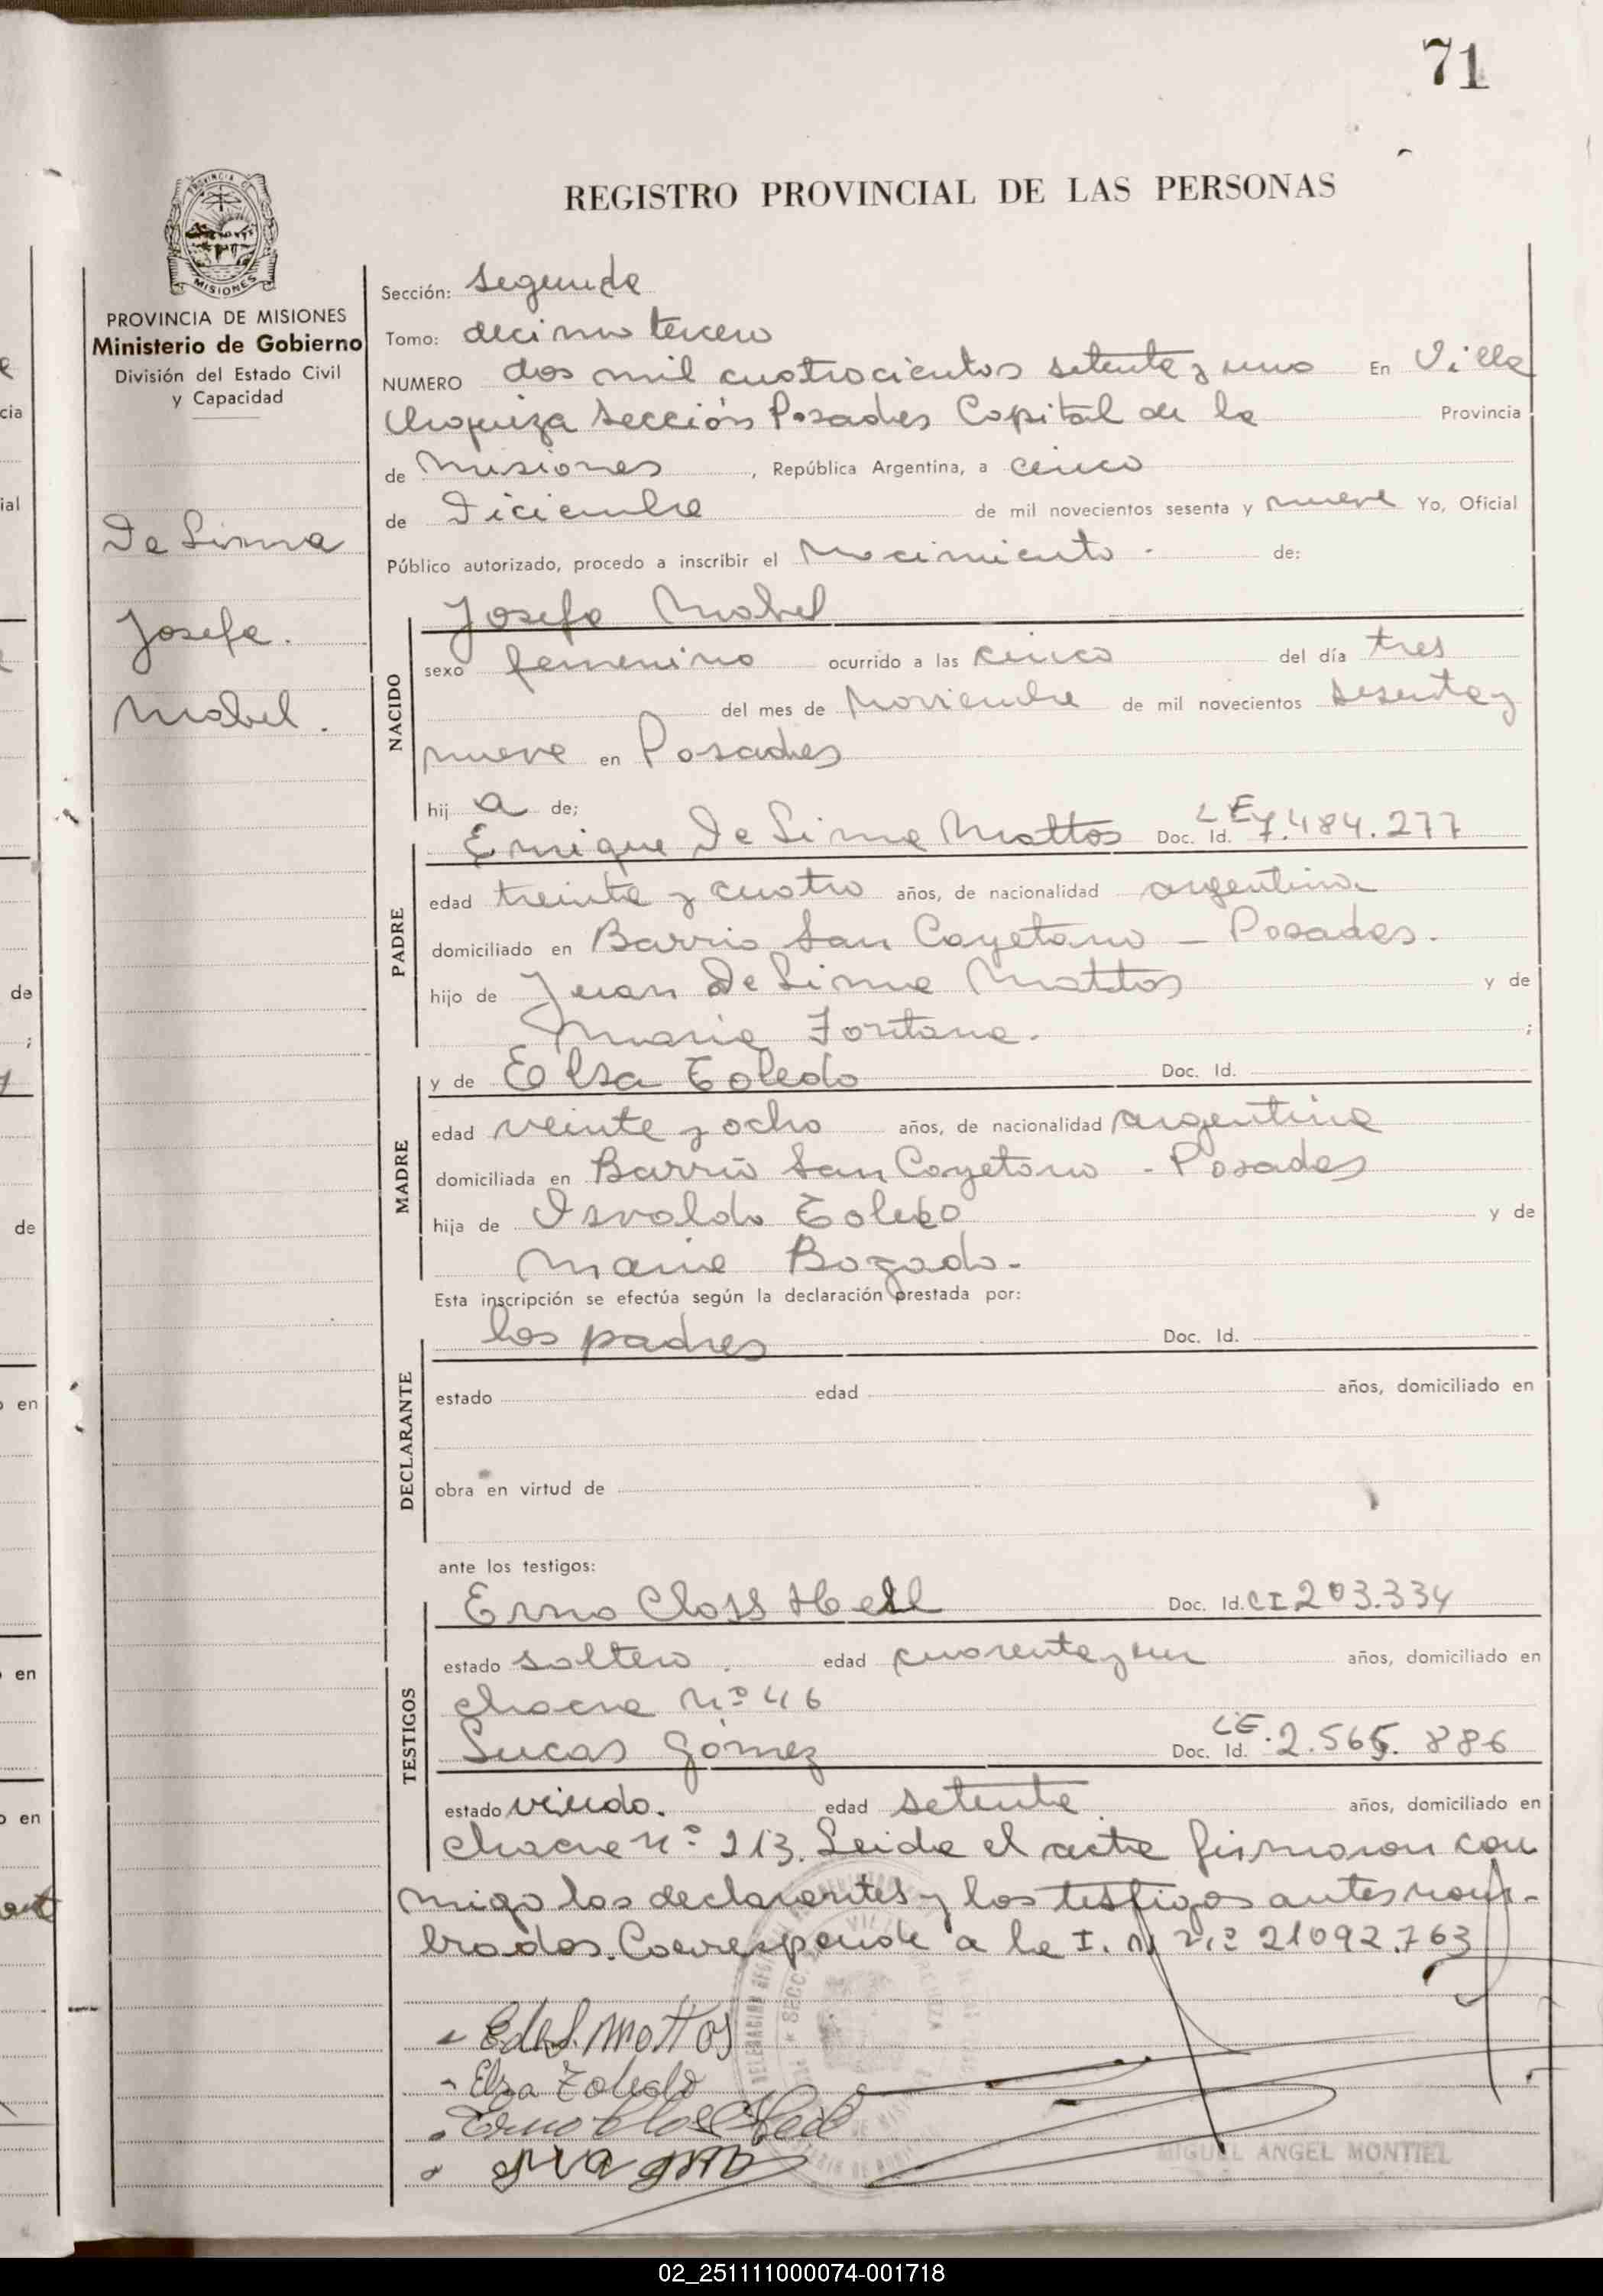 71
REGISTRO PROVINCIAL DE LAS PERSONAS
PROVINCIA DE MISIONES
Ministerio de Gobierno
División del Estado Civil
y Capacidad
De Lima
Josefa.
Mabel.
Sección: segunda
Tomo: decimo tercero
NUMERO dos mil cuatrocientos setenta y uno En Villa
Urquiza Sección Posadas Capital de la Provincia
de Misiones, República Argentina, a cinco
de Diciembre de mil novecientos sesenta y nueve Yo, Oficial
Público autorizado, procedo a inscribir el Nacimiento - de:
Josefa Mabel
NACIDO
sexo femenino ocurrido a las cinco del día tres
del mes de Noviembre de mil novecientos sesenta y
nueve en Posadas
hija de;
Enrique De Lima Mattos Doc. Id. LE 7.484.277
PADRE
edad treinta y cuatro años, de nacionalidad argentina
domiciliado en Barrio San Cayetano - Posadas.
hijo de Juan De Lima Mattos y de
Maria Fontana. ;
y de Elsa Toledo Doc. Id.
MADRE
edad veinte y ocho años, de nacionalidad argentina
domiciliada en Barrio San Cayetano - Posadas
hija de Osvaldo Toledo y de
Maria Bogado.
Esta inscripción se efectúa según la declaración prestada por:
los padres Doc. Id.
DECLARANTE
estado edad años, domiciliado en
obra en virtud de
ante los testigos:
Erno Closs Hell Doc. Id. CI 203.334
TESTIGOS
estado soltero. edad cuarenta y un años, domiciliado en
chacra Nº 46
Lucas Gómez Doc. Id. LE. 2.565.886
estado viudo. edad setenta años, domiciliado en
chacra nº 213. Leida el acta firmaron con
migo los declarantes y los testigos antes nom-
brados. Corresponde a la I. N nº 21092.763
E de L. Mattos
Elsa Toledo
Erno Closs Hell
MIGUEL ANGEL MONTIEL
02_251111000074-001718